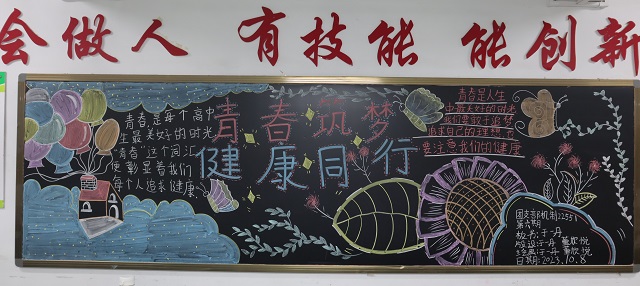 会做人 有技能 能创新
青春筑梦
健康同行
青春,是每个高中
生最美好的时光
"青春"这个词汇
便彰显着我们
每个人追求健康
青春是人生
中最美好的时光
我们要敢于追梦
追求自己的理想,也
要注意我们的健康
团支部:机制2255班
第六期
日期:2023.10.8